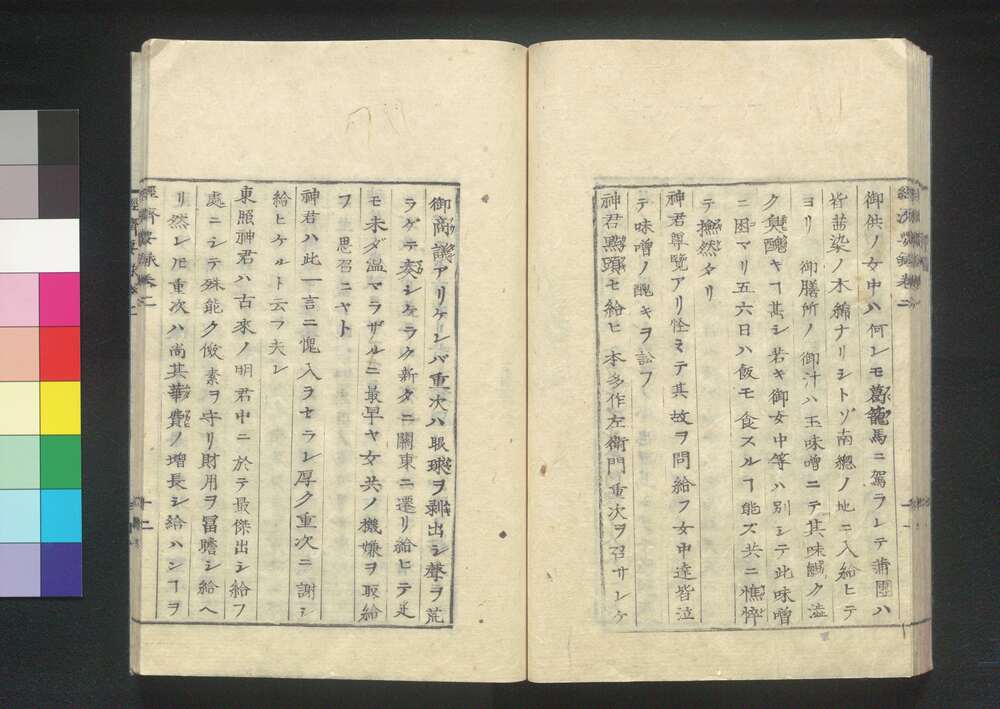 御供ノ女中ハ何レモ葛籠馬ニ駕ラレテ蒲團ハ
皆茜染ノ木綿ナリシトゾ南總ノ地ニ入給ヒテ
ヨリ 御膳所ノ御汁ハ玉味噌ニテ其味鹹ク澁
ク臭醜キヿ甚シ若キ御女中等ハ別シテ此味噌
ニ困マリ五六日ハ飯モ食スルヿ能ズ共ニ憔悴
テ撫然タリ
神君畢覽アリ怪ミテ其故ヲ問給フ女中達皆泣
テ味噌ノ醜キヲ訟フ
神君點頭セ給ヒ本多作左衛門重次ヲ召サレケ
御商議アリケレバ重次ハ眼球ヲ剥出シ聲ヲ荒
ラゲテ奏シケラク新タニ關東ニ遷リ給ヒテ足
モ未ダ温マラザルニ最早ヤ女共ノ機嫌ヲ取給
フ 思召ニヤト
神君ハ此一言ニ愧入ラセラレ厚ク重次ニ謝シ
給ヒケルト云フ夫レ
東照神君ハ古來ノ明君中ニ於テ最傑出シ給フ
處ニシテ殊能ク儉素ヲ守リ財用ヲ冨贍シ給ヘ
リ然レㇳモ重次ハ尚其華費ノ増長シ給ハンヿヲ
十二